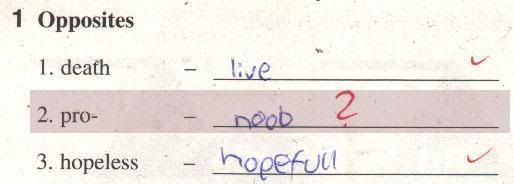 1 Opposites
1. death – live ✓
2. pro- – noob ?
3. hopeless – hopefull ✓